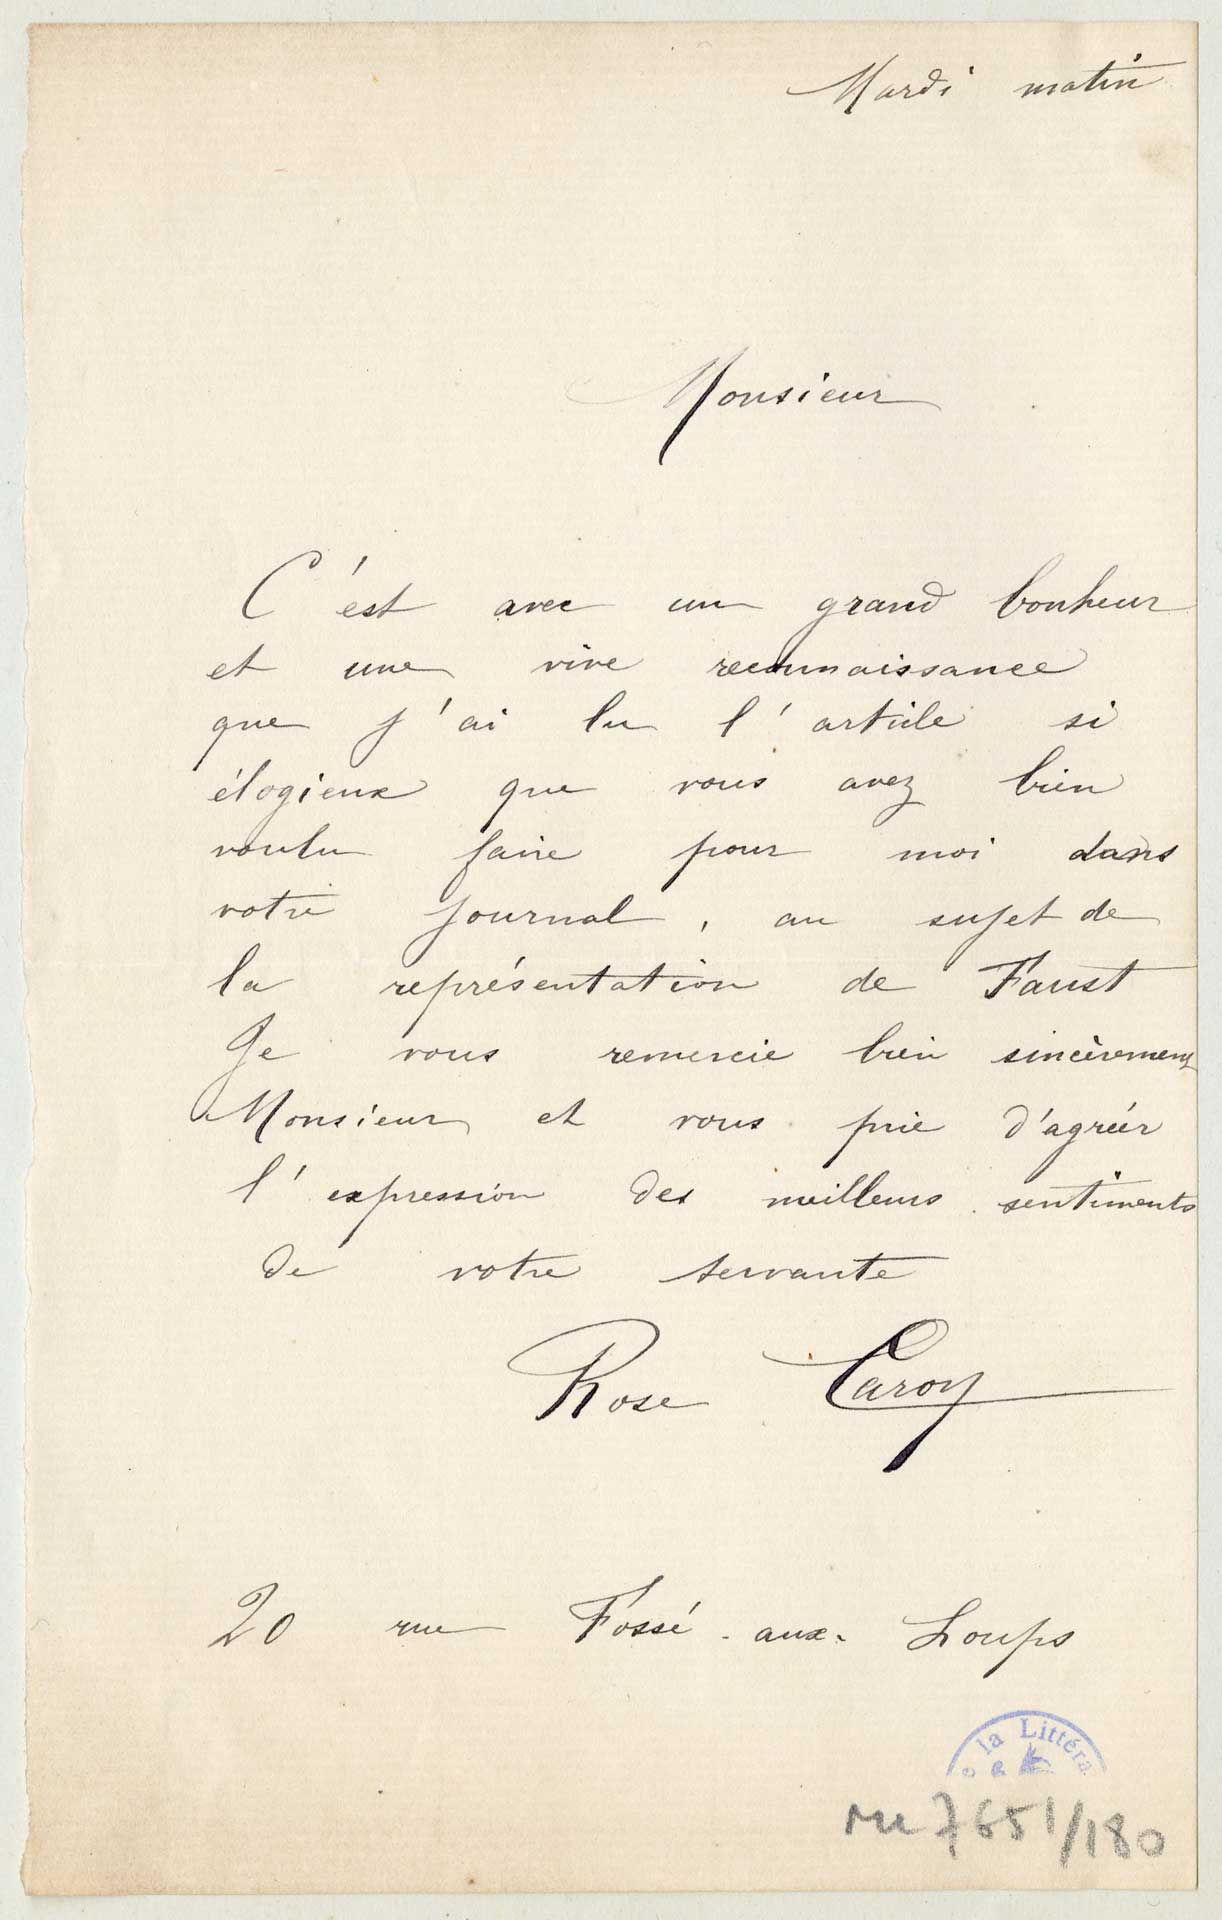 Mardi matin
Monsieur
C'est avec un grand bonheur
et une vive reconnaissance
que j'ai lu l'article si
élogieux que vous avez bien
voulu faire pour moi dans
votre journal, au sujet de
la représentation de Faust
Je vous remercie bien sincèrement
Monsieur et vous prie d'agréer
l'expression des meilleurs sentiments
de votre servante
Rose Caron
20 rue Fossé-aux-Loups
e la Littéra
7651/180